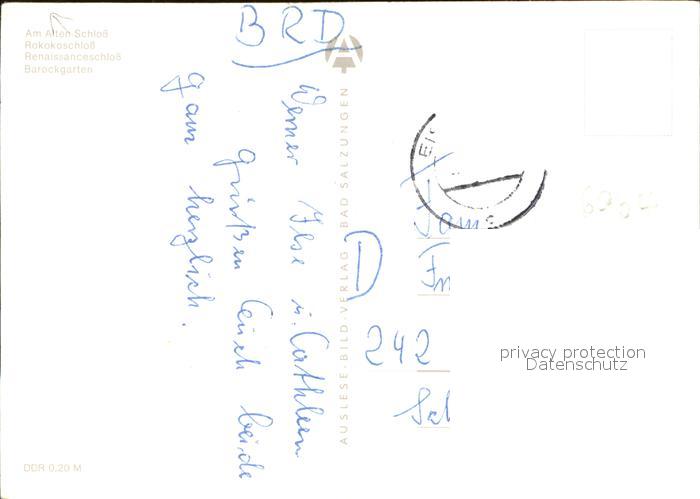 Am Alten Schloß
Rokokoschloß
Renaissanceschloß
Barockgarten
BRD
Werner Ilse u. Cathleen
grüßen Euch beide
ganz herzlich.
AUSLESE-BILD-VERLAG BAD SALZUNGEN
D
Fam
242
privacy protection
Datenschutz
DDR 0,20 M